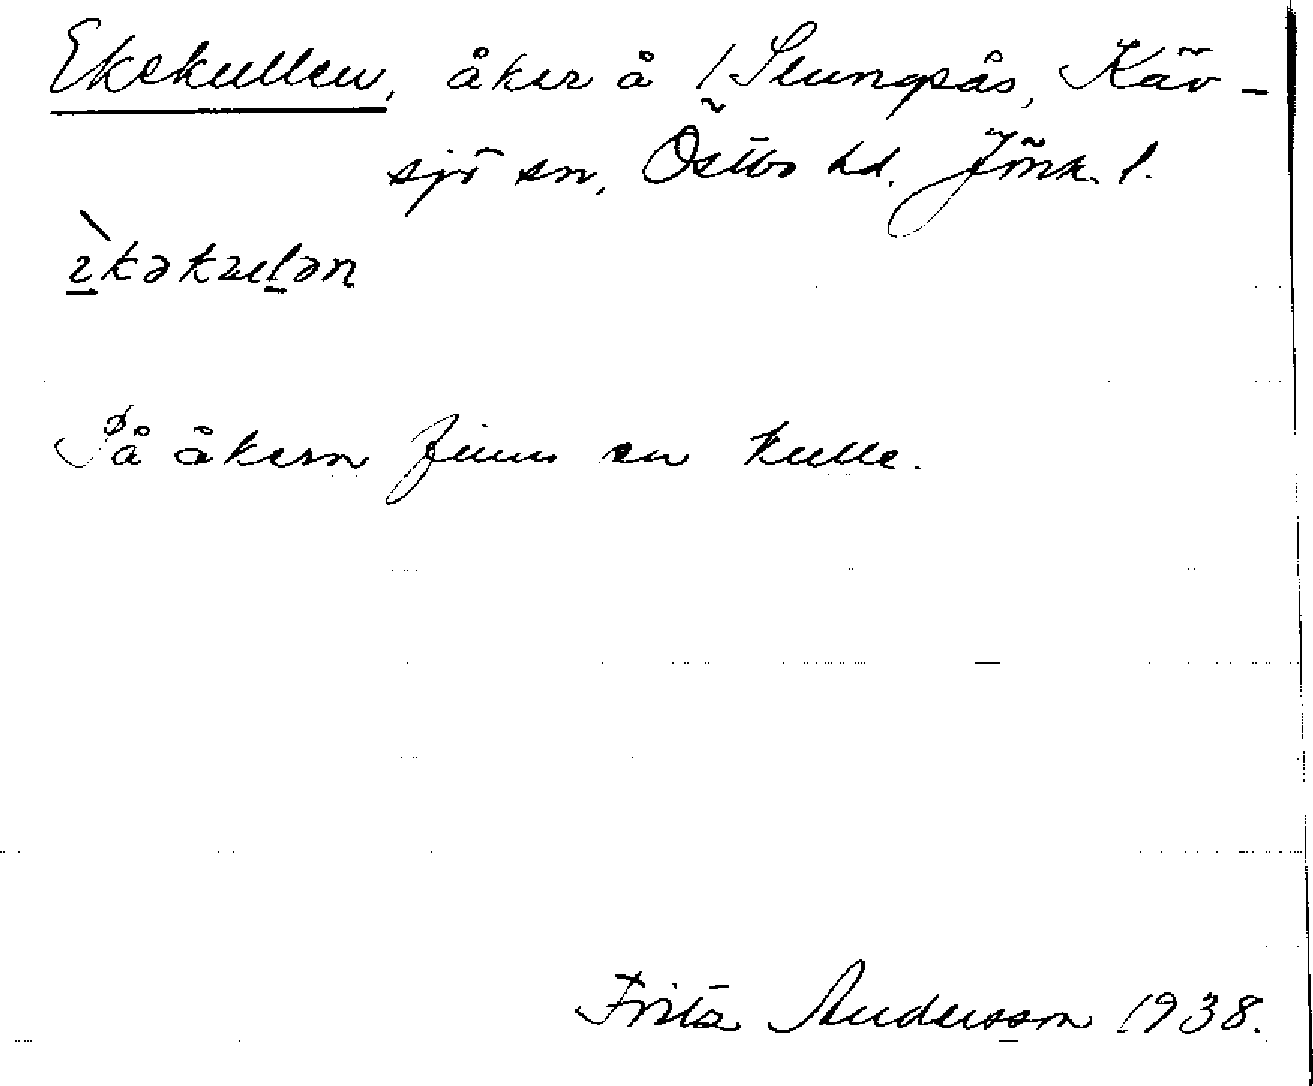 Ekekullen, åker å /Slungsås, Käv-
sjö sn, Östbo hd. Jönk. l.
På åkern finns en kulle.
Fritz Andersson 1938.